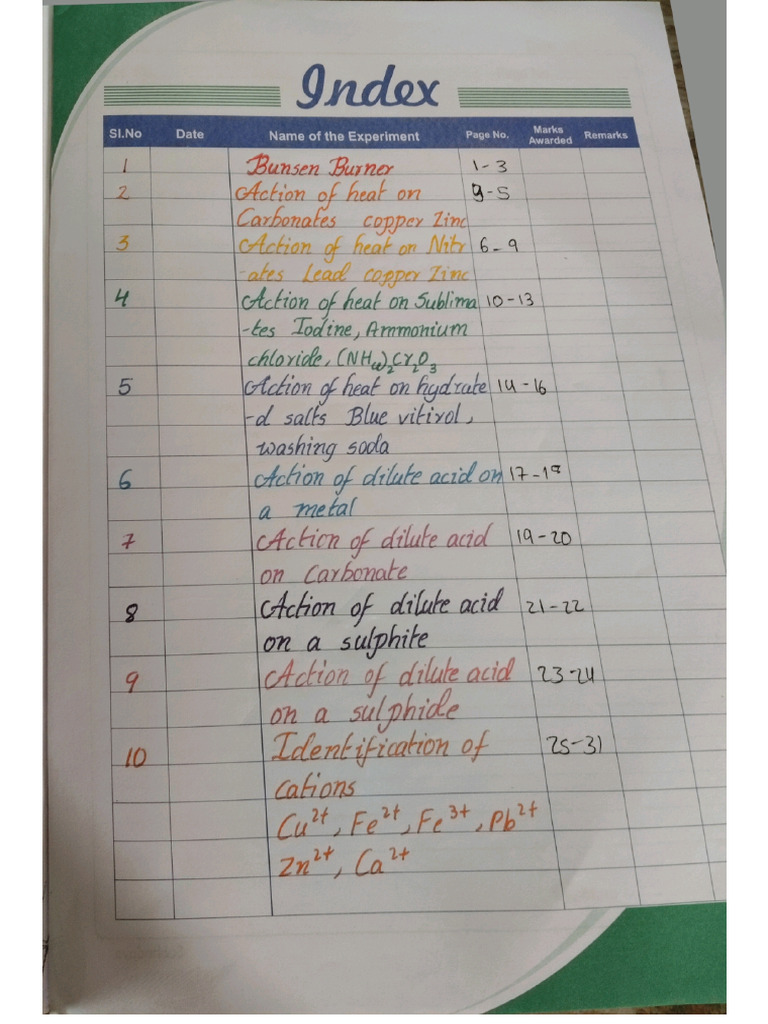 Index
Sl.No Date Name of the Experiment Page No. Marks Awarded Remarks
1 Bunsen Burner 1-3
2 Action of heat on 9-5
Carbonates copper Zinc
3 Action of heat on Nitr 6-9
-ates Lead copper Zinc
4 Action of heat on Sublima 10-13
-tes Iodine, Ammonium
chloride, (NH₄)₂Cr₂O₃
5 Action of heat on hydrate 14-16
-d salts Blue vitirol,
washing soda
6 Action of dilute acid on 17-18
a metal
7 Action of dilute acid 19-20
on Carbonate
8 Action of dilute acid 21-22
on a sulphite
9 Action of dilute acid 23-24
on a sulphide
10 Identification of 25-31
cations
Cu²⁺, Fe²⁺, Fe³⁺, Pb²⁺
Zn²⁺, Ca²⁺